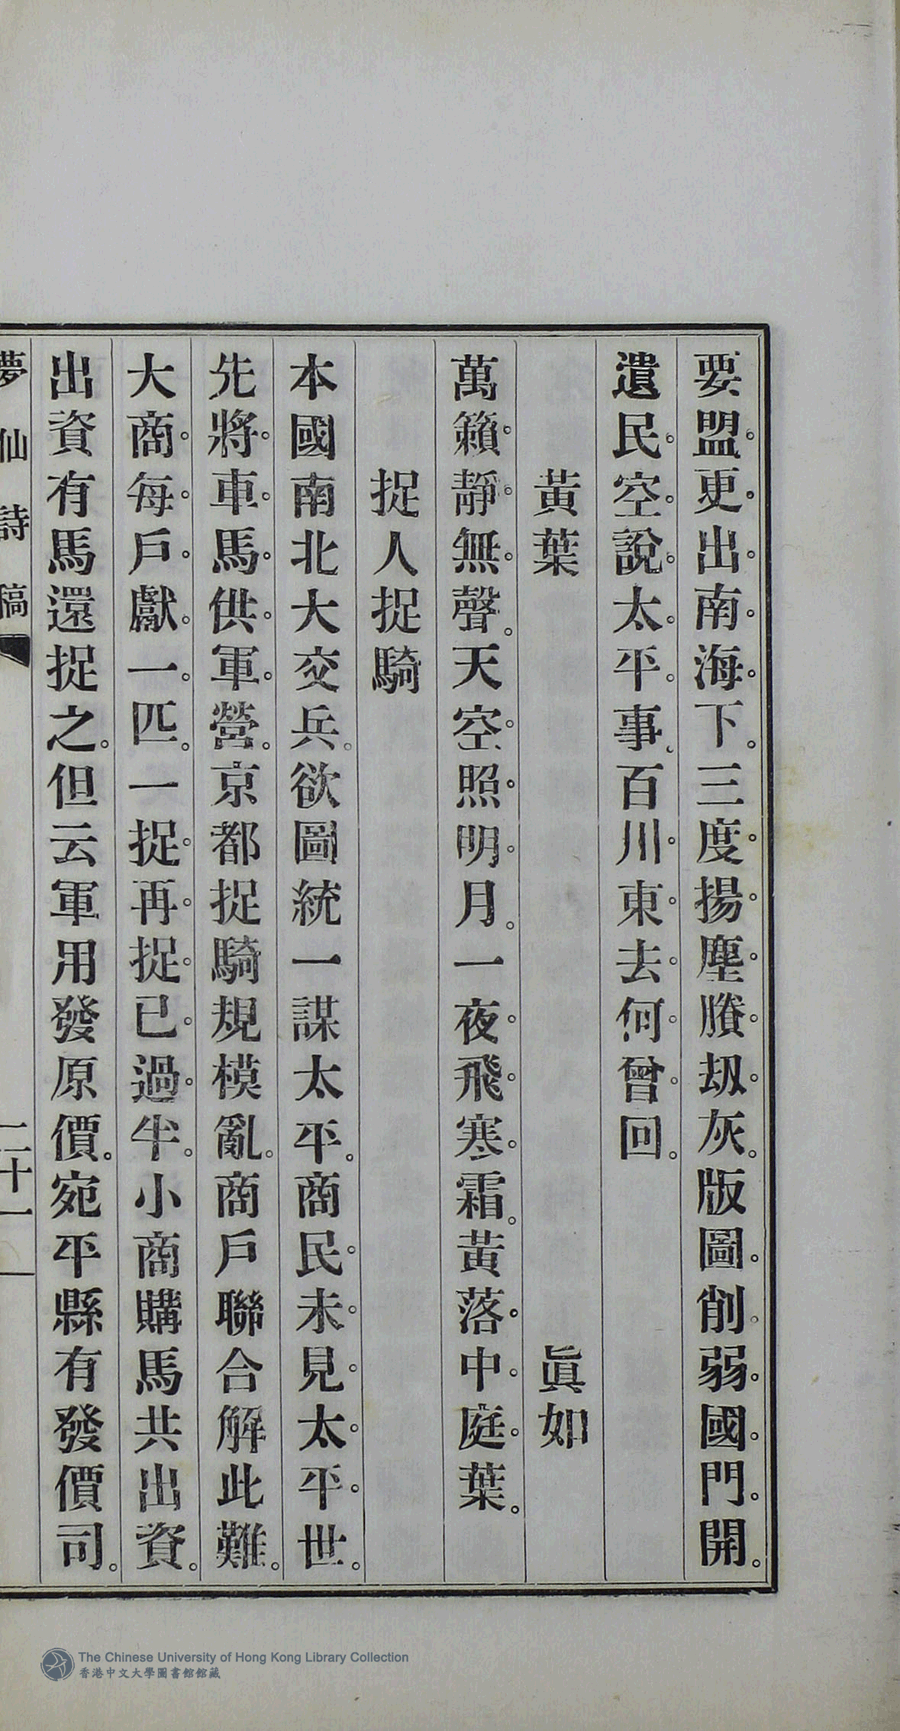 要盟。更。出。南。海。下。三度。揚。塵。賸。劫。灰。版圖。削。弱。國。門。開。
遺民。空。說。太。平。事。百川。東。去。何。曾。回。
黃葉　眞如
萬籟。靜。無。聲。天空。照。明。月。一夜。飛。寒。霜。黃落。中。庭。葉。
捉人捉騎
本國南北大交兵。欲圖統一謀太平。商民。未。見。太。平。世。
先將。車。馬。供。軍。營。京都捉騎規模亂。商戶聯合解此難。
大商。每。戶。獻。一。匹。一捉。再。捉。已。過。半。小商購馬共出資。
出資有馬還捉之。但云軍用發原價。宛平縣有發價司。
夢仙詩稿　二十一
The Chinese University of Hong Kong Library Collection
香港中文大學圖書館館藏